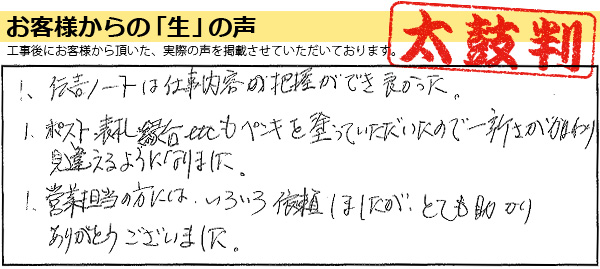 お客様からの「生」の声
工事後にお客様から頂いた、実際の声を掲載させていただいております。
太鼓判
1、伝言ノートは仕事内容の把握ができ良かった。
1、ポスト、表札、縁台etcもペンキを塗っていただいたので一新さが加わり
見違えるようになりました。
1、営業担当の方には、いろいろ依頼しましたが、とても助かり
ありがとうございました。